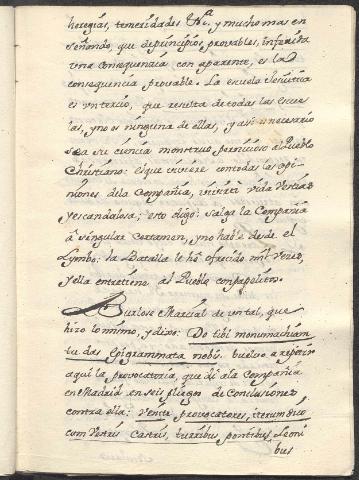 heregias, temeridades &c.ª y mucho mas en
señando, que de principios provables, inferida
vna consequencia con aparente, es la
consequencia provable. La escuela Jesuitica
es vn tercio, que resulta de todas las escue
las, y no es ninguna de ellas, y assi es necesario
sea su ciencia monstruo pernicioso al Pueblo
Christiano: el que viviere con todas las opi-
niones de la Compañia, vivirà vida bestial
y escandalosa; esto digo: salga la Compañia
à singular certamen, y no hable desde el
Lymbo: la Batalla le hè ofrecido mil vezes,
y ella entretiene al Pueblo con papelitos.
Burlose Marcial de vn tal, que
hizo lo mismo, y dixo: Do tibi monumachiam
tu das Epigrammata nobis. buelvo a repetir
aqui la provocatoria, que dì a la Compañia
en Madrid en seis pliegos de Conclusiones
contra ella: Venite provocatores, iterum dico
cum vestris castris, turribus, pontibus, Leoni
bus